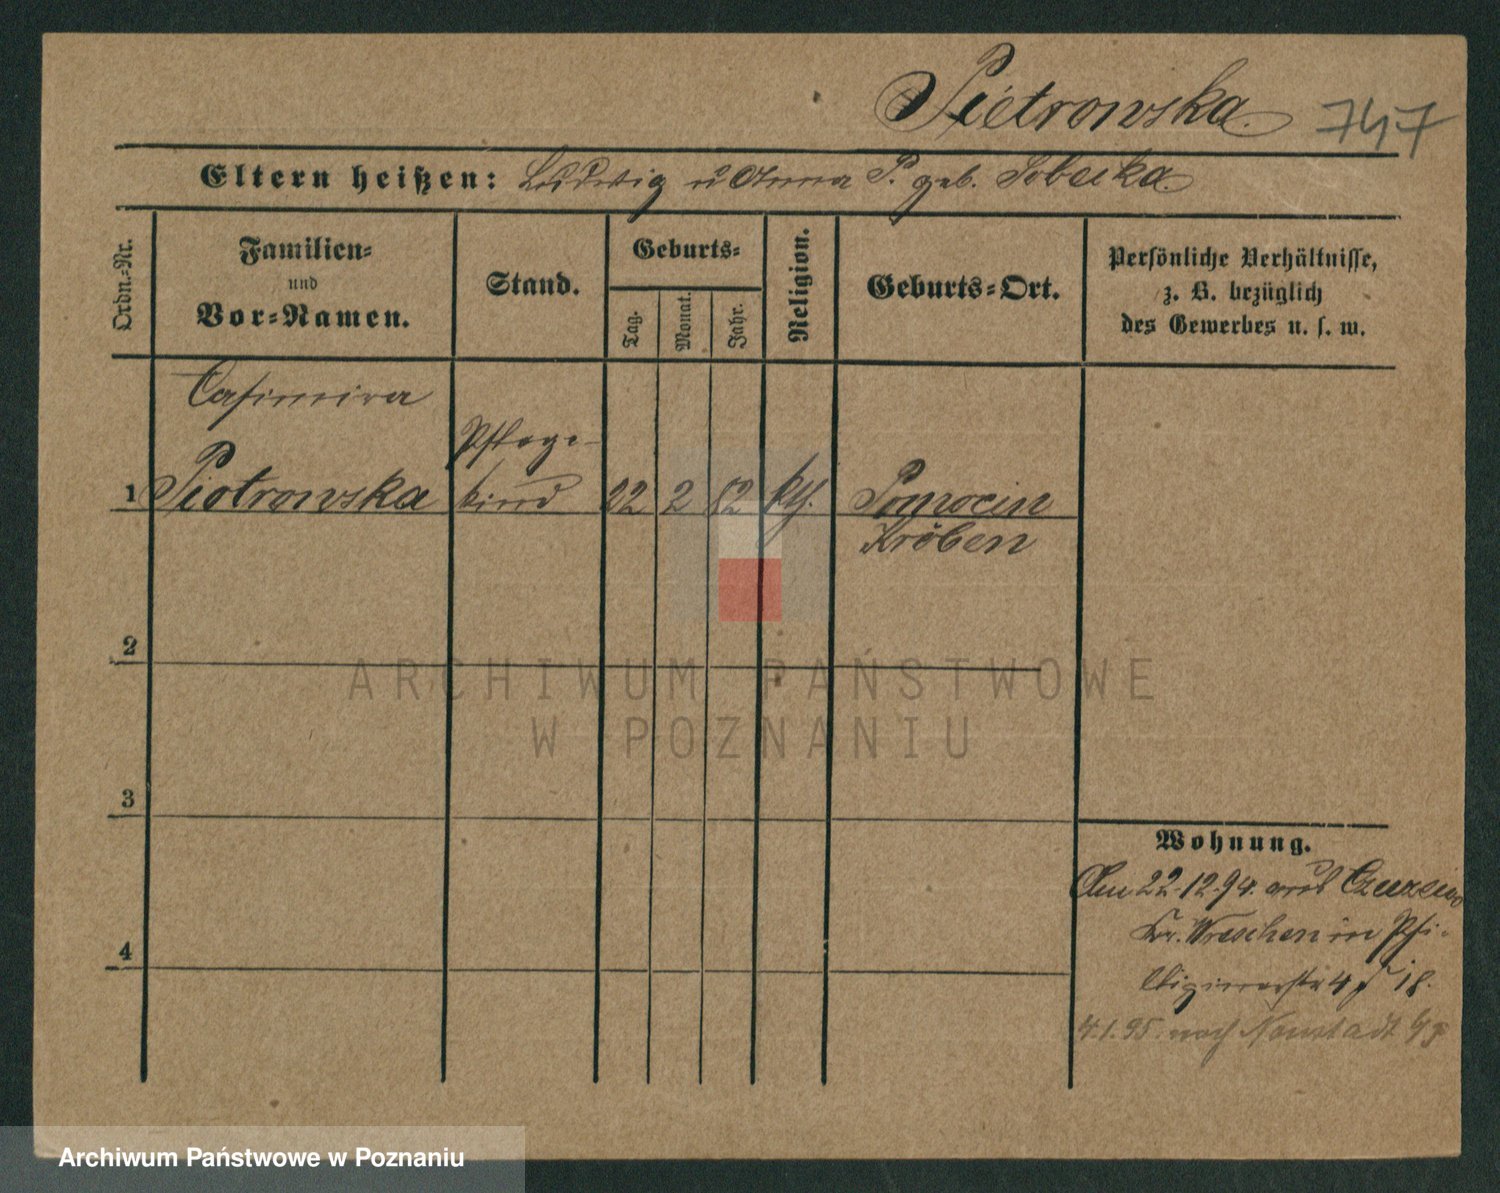 Pietrowska. 747
Eltern heißen: Ludwig u Anna P. geb. Sobecka
Ordn.-Nr.
Familien-
und
Vor-Namen.
Stand.
Geburts-
Tag.
Monat.
Jahr.
Religion.
Geburts-Ort.
Persönliche Verhältnisse,
z. B. bezüglich
des Gewerbes u. s. w.
Casimira
Pflege-
1 Piotrowska kind 22 2 82 kth. Pomocin
Kröben
2
ARCHIWUM PAŃSTWOWE
W POZNANIU
3
Wohnung.
Am 22.12.94. aus
Kr. Wreschen in
4
4 18.
4.1.95. nach Neustadt
Archiwum Państwowe w Poznaniu